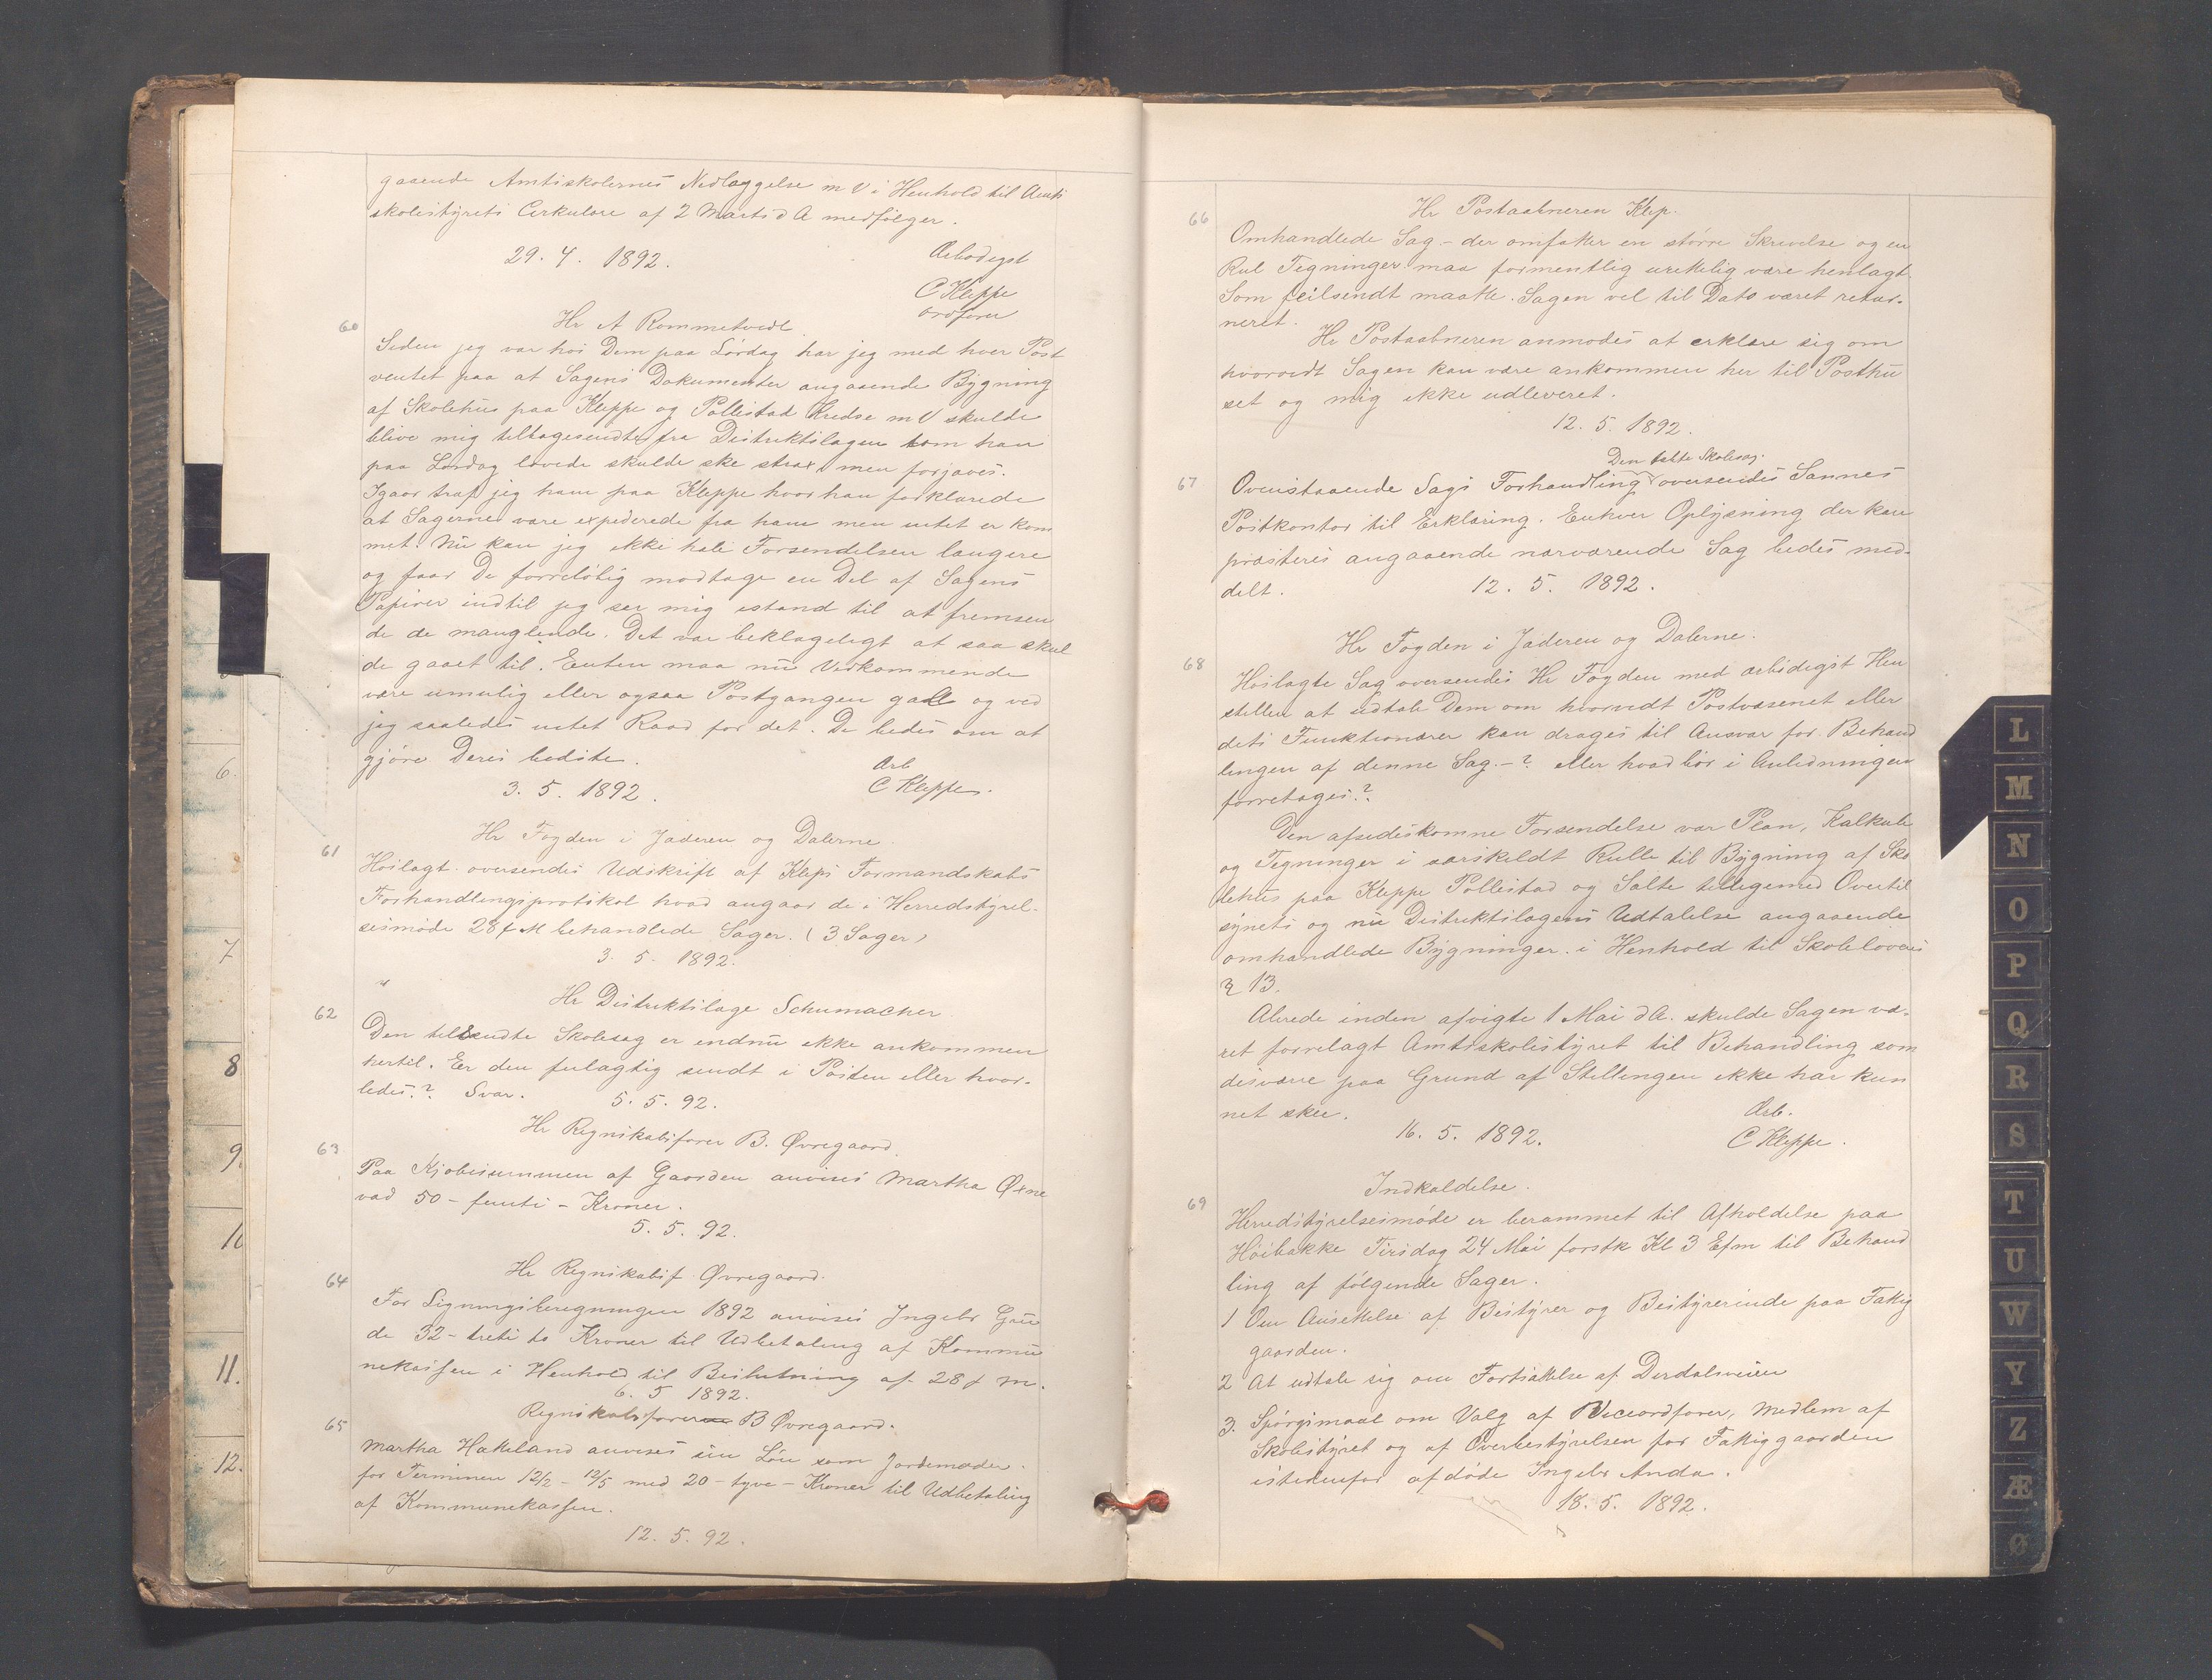 gaaende Amtsskolernes Nedlæggelse m V i Henhold til Amts
skolestyrets Cirkulære af 2 Marts d A medfølger.
29. 4. 1892.
Ærbødigst
C Kleppe
Ordfører
60
Hr A Rommetvedt
Siden jeg var hos Dem paa Lørdag har jeg med hver Post
ventet paa at Sagens Dokumenter angaaende Bygning
af Skolehus paa Kleppe og Pollestad Kredse m V skulde
blive mig tilbagesendte fra Distriktslægen som han
paa Lørdag lovede skulde ske strax men forjæves.
Igaar traf jeg ham paa Kleppe hvor han forklarede
at Sagerne vare expederede fra ham men intet er kom
met. Nu kan jeg ikke hale Forsendelsen længere
og faar De foreløbig modtage en Del af Sagens
Papirer indtil jeg ser mig istand til at fremsen
de de manglende. Det var beklageligt at saa skul
de gaaet til. Enten maa nu Vedkommende
være umulig eller ogsaa Postgangen gall og ved
jeg saaledes intet Raad for det. De bedes om at
gjøre Deres bedste.
Ærb
3. 5. 1892.
C Kleppe.
61
Hr Fogden i Jæderen og Dalerne
Hoslagt oversendes Udskrift af Kleps Formandskabs
Forhandlingsprotokol hvad angaar de i Herredstyrel-
sesmøde 28 f M behandlede Sager. (3 Sager)
3. 5. 1892.
62
Hr Distriktslæge Schumacher
Den tilsendte Skolesag er endnu ikke ankommen
hertil. Er den fulagtig sendt i Posten eller hvor-
ledes? Svar.
5. 5. 92.
63
Hr Regnskabsfører B. Øvregaard.
Paa Kjøbesummen af Gaarden anvises Martha Øxne
vad 50 - femti - Kroner.
5. 5. 92.
64
Hr Regnskabsf. Øvregaard.
For Ligningsberegningen 1892 anvises Ingebr Grue
de 32 - treti to Kroner til Udbetaling af Kommu
nekassen i Henhold til Beslutning af 28 f M.
6. 5 1892.
65
Regnskabsfører B Øvregaard.
Martha Hakeland anvises sin Løn som Jordemoder
for Terminen 12/2 - 12/5 med 20 - tyve - Kroner til Udbetaling
af Kommunekassen.
12. 5. 92.
66
Hr Postaabneren Klep.
Omhandlede Sag - der omfatter en større Skrivelse og en
Rul Tegninger maa formentlig urettelig være henlagt
Som feilsendt maatte Sagen vel til Dato været retur-
neret.
Hr Postaabneren anmodes at erklære sig om
hvorvidt Sagen kan være ankommen her til Posthu
set og mig ikke udleveret.
12. 5. 1892.
67
Den tabte Skolesag.
Ovenstaaende Sags Forhandling oversendes Sannes
Postkontor til Erklæring. Enhver Oplysning der kan
præsteres angaaende nærværende Sag bedes med-
delt.
12. 5. 1892.
68
Hr Fogden i Jæderen og Dalerne.
Hoslagte Sag oversendes Hr Fogden med ærbødigst Hen
stillen at udtale Dem om hvorvidt Postvæsenet eller
dets Funktionærer kan drages til Ansvar for Behand
lingen af denne Sag - ? eller hvad bør i Anledningen
foretages?
Den afsideskomne Forsendelse var Plan, Kalkule
og Tegninger i særskildt Rulle til Bygning af Sko
lehus paa Kleppe Pollestad og Salte tilligemed Overtil
synets og nu Distriktslægens Udtalelse angaaende
omhandlede Bygninger. i Henhold til Skolelovens
§ 13.
Alrede inden afvigte 1 Mai d A. skulde Sagen væ-
ret forrelagt Amtsskolestyret til Behandling som
desværre paa Grund af Stillingen ikke har kun
net skee.
Ærb.
16. 5. 1892.
C. Kleppe.
69
Indkaldelse.
Herredstyrelsesmøde er berammet til Afholdelse paa
Høibakke Tirsdag 24 Mai førstk Kl 3 Efm til Behand
ling af følgende Sager.
1 Om Ansettelse af Bestyrer og Bestyrerinde paa Fattig
gaarden.
2 At udtale sig om Fortsættelse af Dirdalsveien
3. Spørgsmaal om Valg af Viceordfører, Medlem af
Skolestyret og af Overbestyrelsen for Fattiggaarden
istedenfor afdøde Ingebr Anda.
18. 5. 1892.
6.
7
8
9.
10
11.
12.
L
M
N
O
P
Q
R
S
T
U
W
Y
Z
Æ
Ø